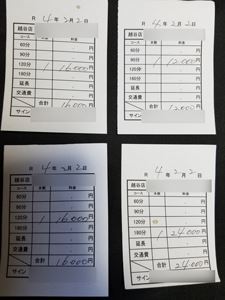 R 4年2月2日
越谷店
コース 本数 料金
60分 円
90分 円
120分 1 16,000円
180分 円
延長 円
交通費 円
合計 16,000円
サイン
R 4年2月2日
越谷店
コース 本数 料金
60分 円
90分 1 12,000円
120分 円
180分 円
延長 円
交通費 円
合計 12,000円
サイン
R 4年2月2日
越谷店
コース 本数 料金
60分 円
90分 円
120分 1 16,000円
180分 円
延長 円
交通費 円
合計 16,000円
サイン
R 4年2月2日
越谷店
コース 本数 料金
60分 円
90分 円
120分 円
180分 1 24,000円
延長 円
交通費 円
合計 24,000円
サイン